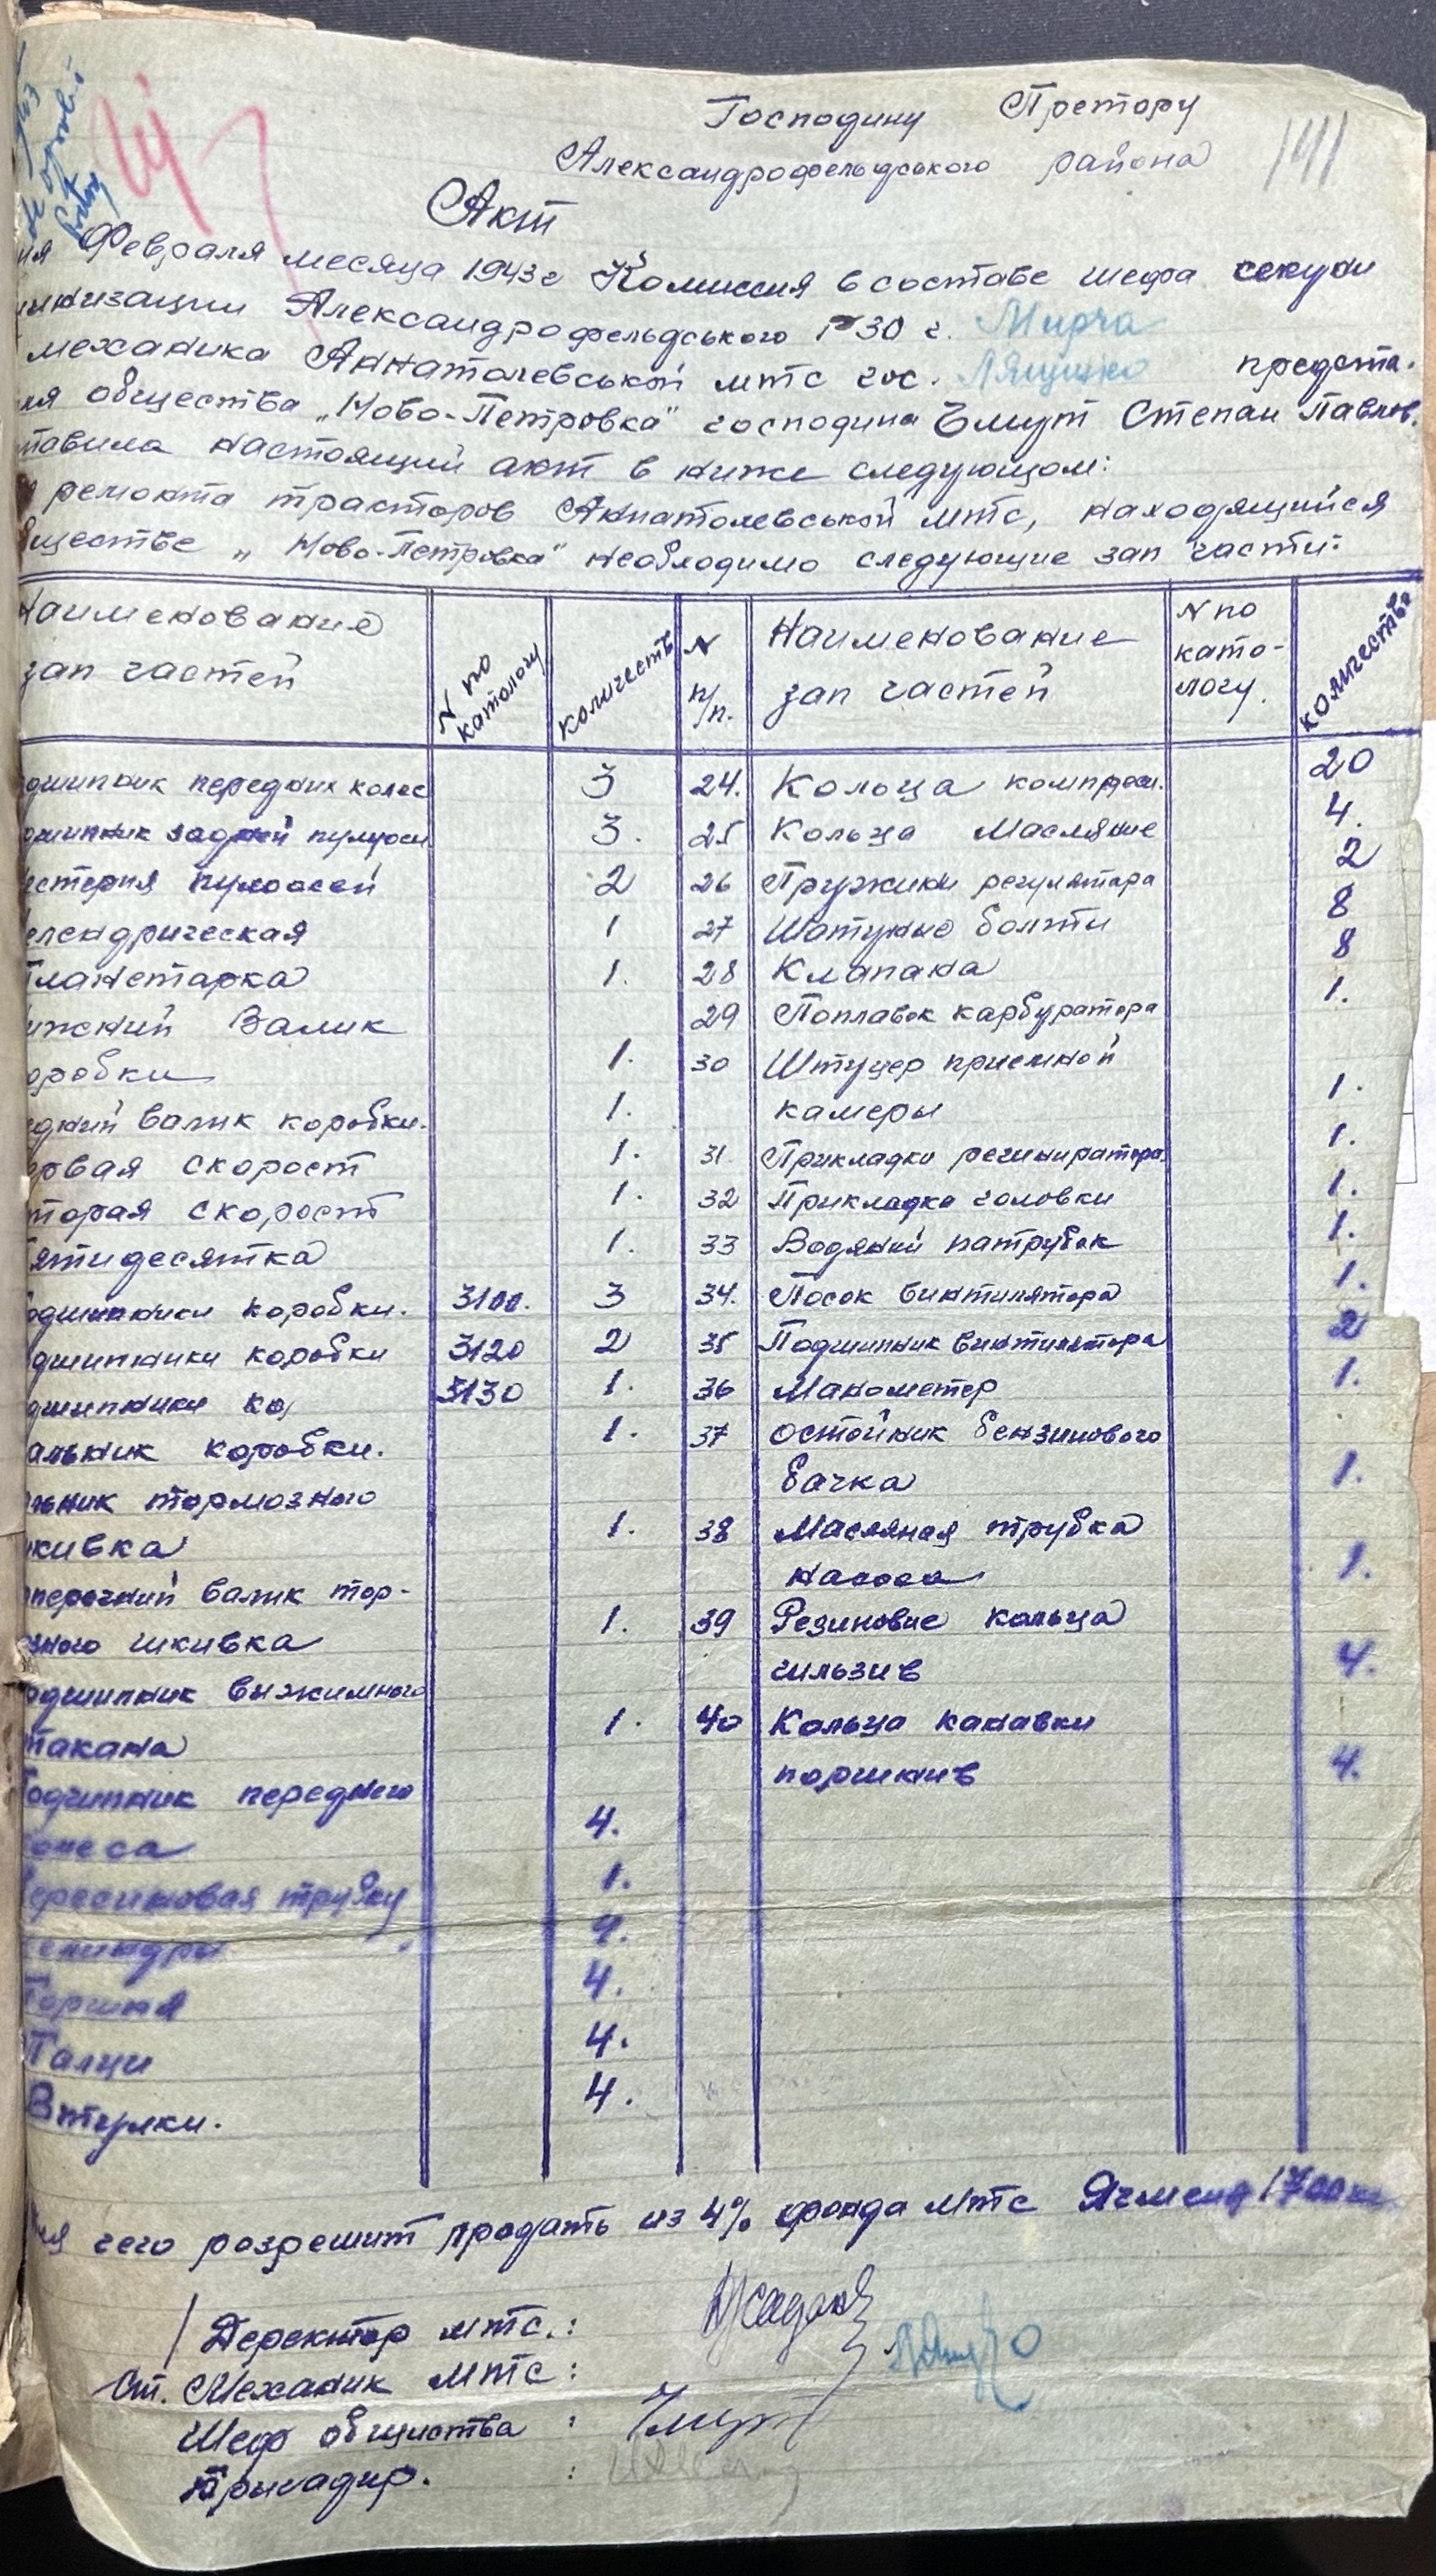 Господину Претору
Александрофельдського района
141
Акт
Февраля месяца 1943 г Комиссия в составе шефа секции
Александрофельдського Р-30 г. Мирча
механика Аннатолевськой мтс гос. предста-
общества „Ново-Петровка" господина Чмут Степан Павлов.
ставила настоящий акт в ниже следующом:
ремонта тракторов Аннатолевськой мтс, находящийся
обществе „Ново-Петровка" необходимо следующие зап части:
Наименование зап частей | N по катологу | количество | N п/п. | Наименование зап частей | N по като-логу. | количество
дшипник передних колес 3 24. Кольца компресси. 20
дшипник задней пулуоси 3. 25 Кольца Масляние 4.
естерня пулоосей 2 26 Пружини регулятора 2
елендрическая 1 27 Шатуние болти 8
Планетарка 1. 28 Клапана 8
ижний Валик 29 Поплавок карбуратора 1.
оробки 1. 30 Штуцер приемной
едний валик коробки. 1. камеры 1.
рвая скорост 1. 31 Прикладки 1.
торая скорост 1. 32 Прикладка головки 1.
ятидесятка 1. 33 Водяний патрубок 1.
одшипники коробки. 3100. 3 34. Посок винтилятора 1.
дшипники коробки 3120 2 35 Подшипник винтилятора 2
дшипники ко 3130 1. 36 Манометер 1.
альник коробки. 1. 37 остойник бензинового
льник тормозного бачка 1.
кивка 1. 38 Масляная трубка
перечний валик тор- насоса 1.
зного шкивка 1. 39 Резиновие кольца
одшипник выжимного гильзив 4.
такана 1. 40 Кольца канавки
Подшипник переднего поршнив 4.
Колеса 4.
трубку 1.
4.
Поршня 4.
Палци 4.
Втулки. 4.
чего розрешит продать из 4% фонда мтс Ячменя 1700 кг
Деректор мтс.:
Ст. Механик мтс:
Шеф общиства : Чмут
Брыгадир. :